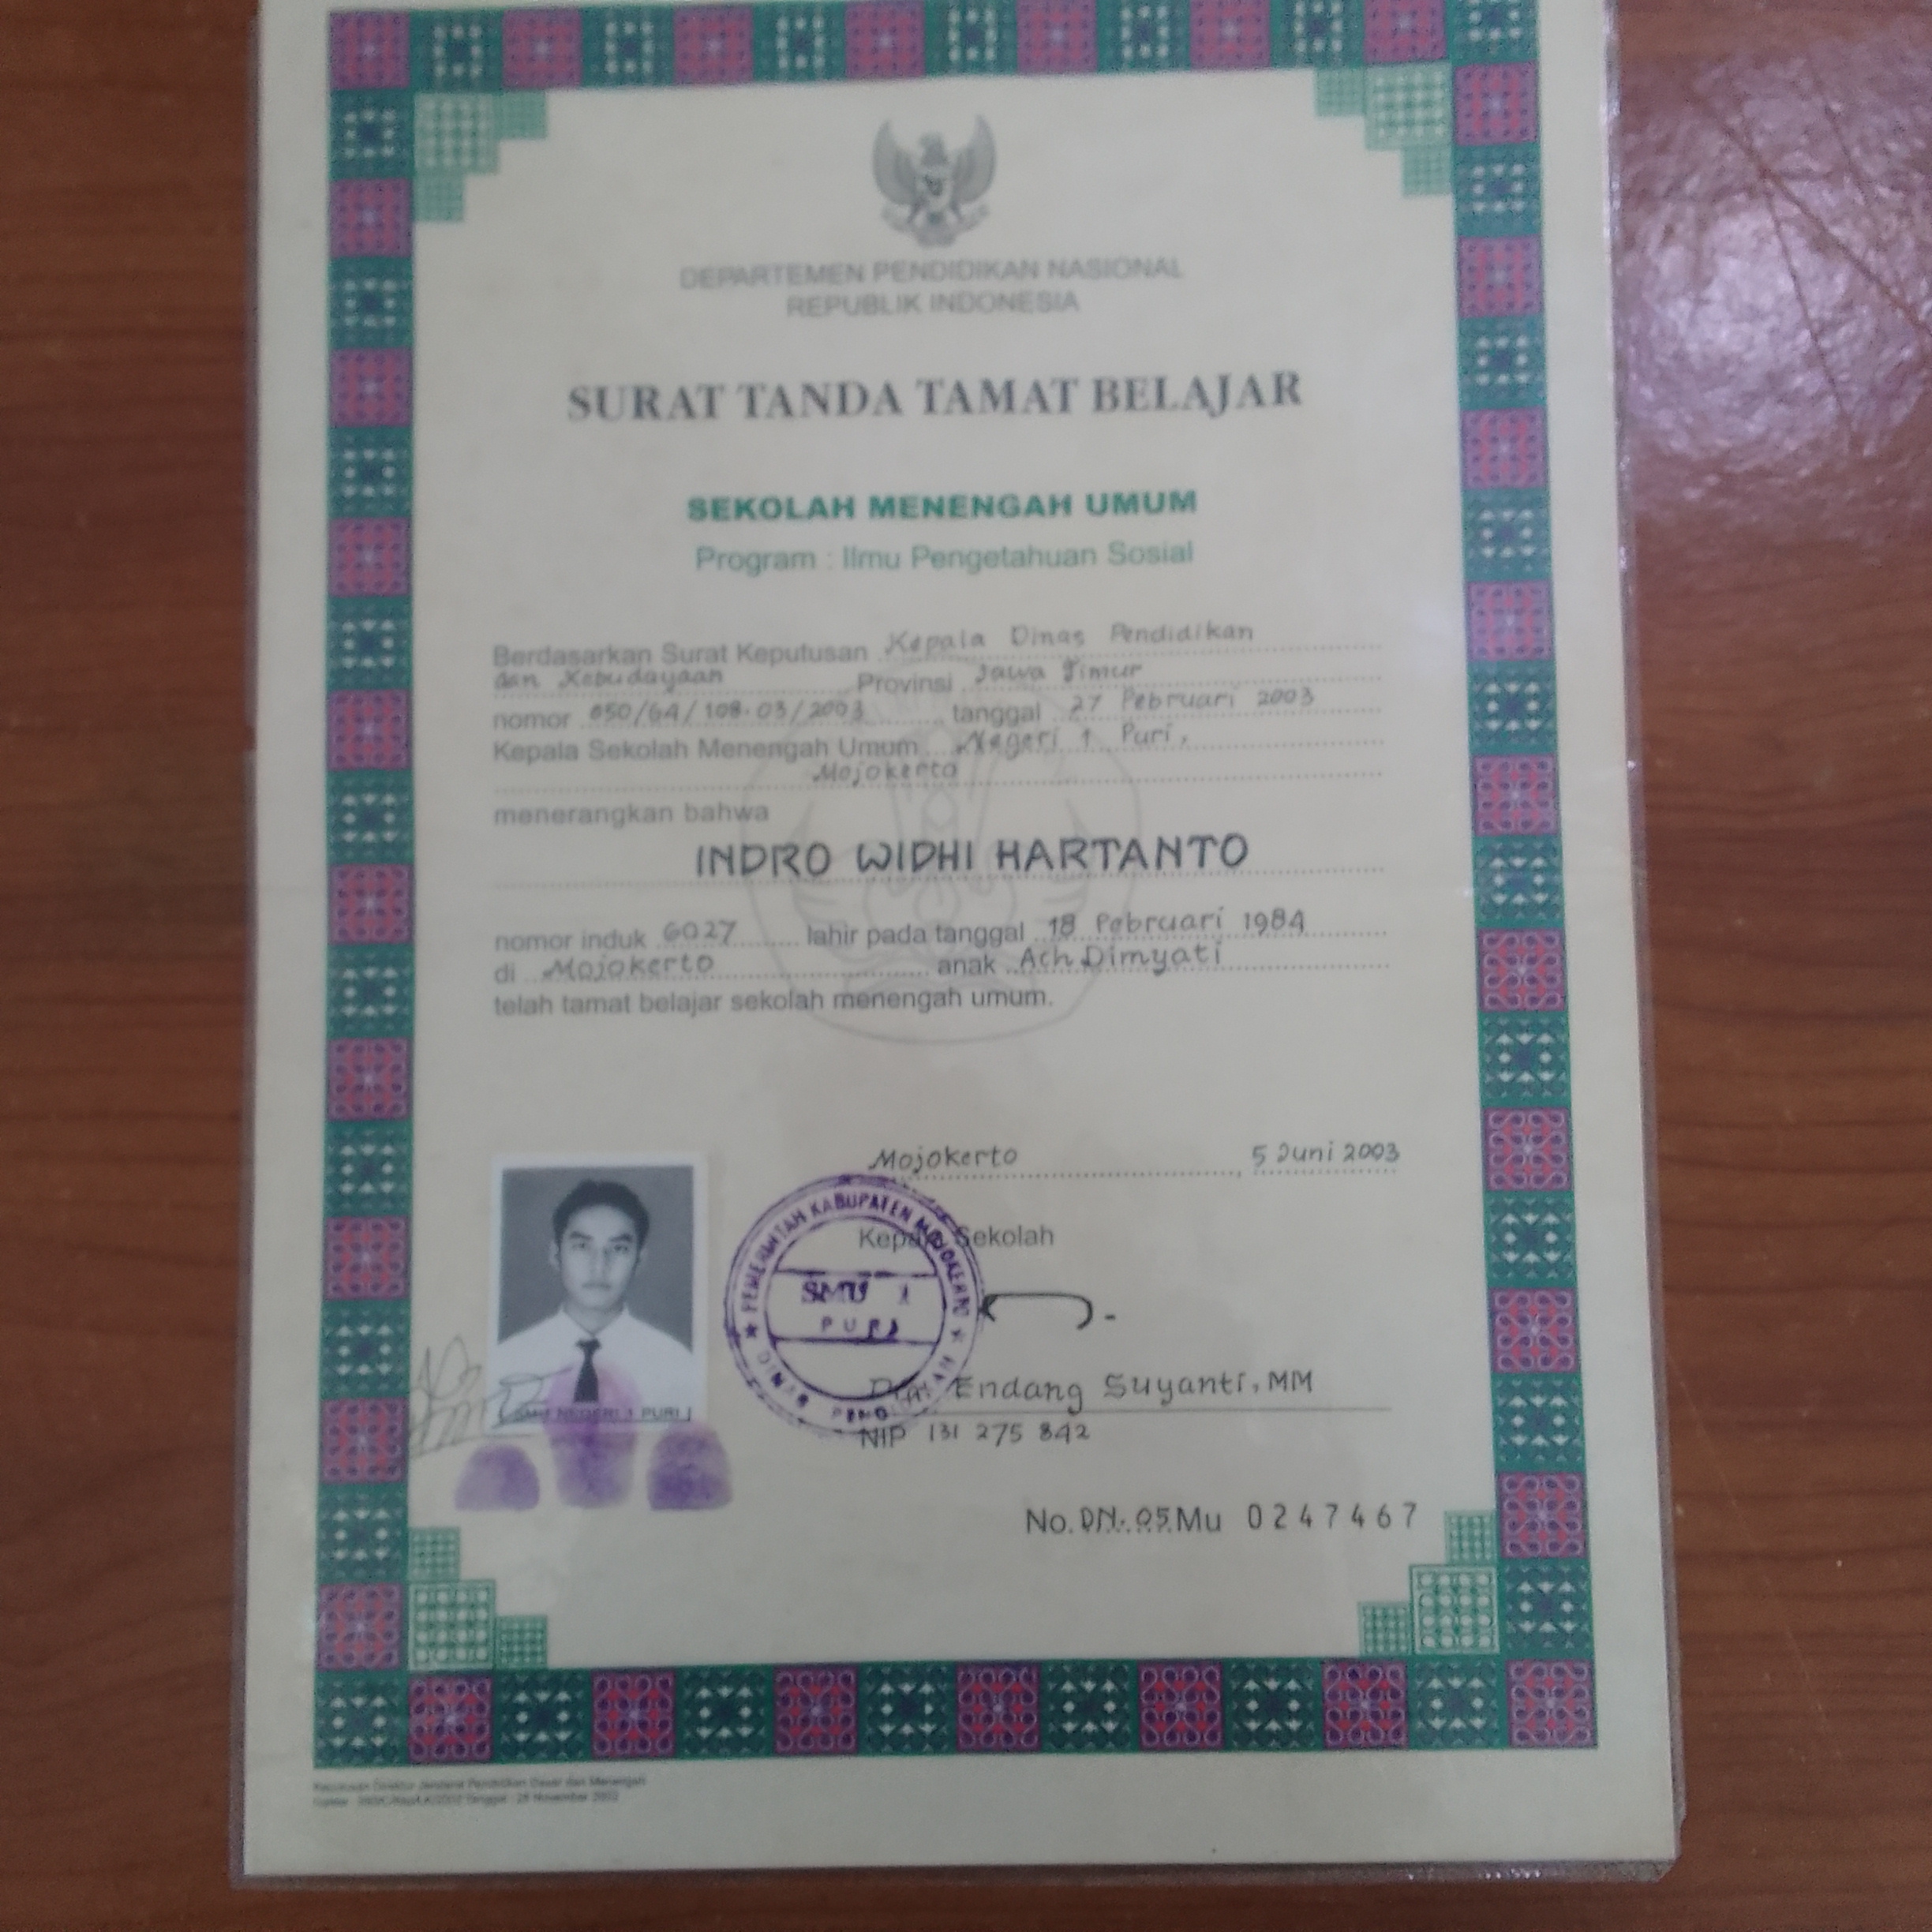 DEPARTEMEN PENDIDIKAN NASIONAL
REPUBLIK INDONESIA
SURAT TANDA TAMAT BELAJAR
SEKOLAH MENENGAH UMUM
Program : Ilmu Pengetahuan Sosial
Berdasarkan Surat Keputusan Kepala Dinas Pendidikan
dan Kebudayaan Provinsi Jawa Timur
nomor 050/64/108.03/2003 tanggal 27 Pebruari 2003
Kepala Sekolah Menengah Umum Negeri 1 Puri,
Mojokerto
menerangkan bahwa
INDRO WIDHI HARTANTO
nomor induk 6027 lahir pada tanggal 18 Pebruari 1984
di Mojokerto anak Ach Dimyati
telah tamat belajar sekolah menengah umum.
Mojokerto, 5 Juni 2003
Kepala Sekolah
PEMERINTAH KABUPATEN MOJOKERTO
SMU 1
PURI
DINAS PENDIDIKAN
SMU NEGERI 1 PURI
Dra. Endang Suyanti, MM
NIP 131 275 842
No. DN. 05 Mu 0247467
Keputusan Direktur Jenderal Pendidikan Dasar dan Menengah
Tanggal : 28 November 2002